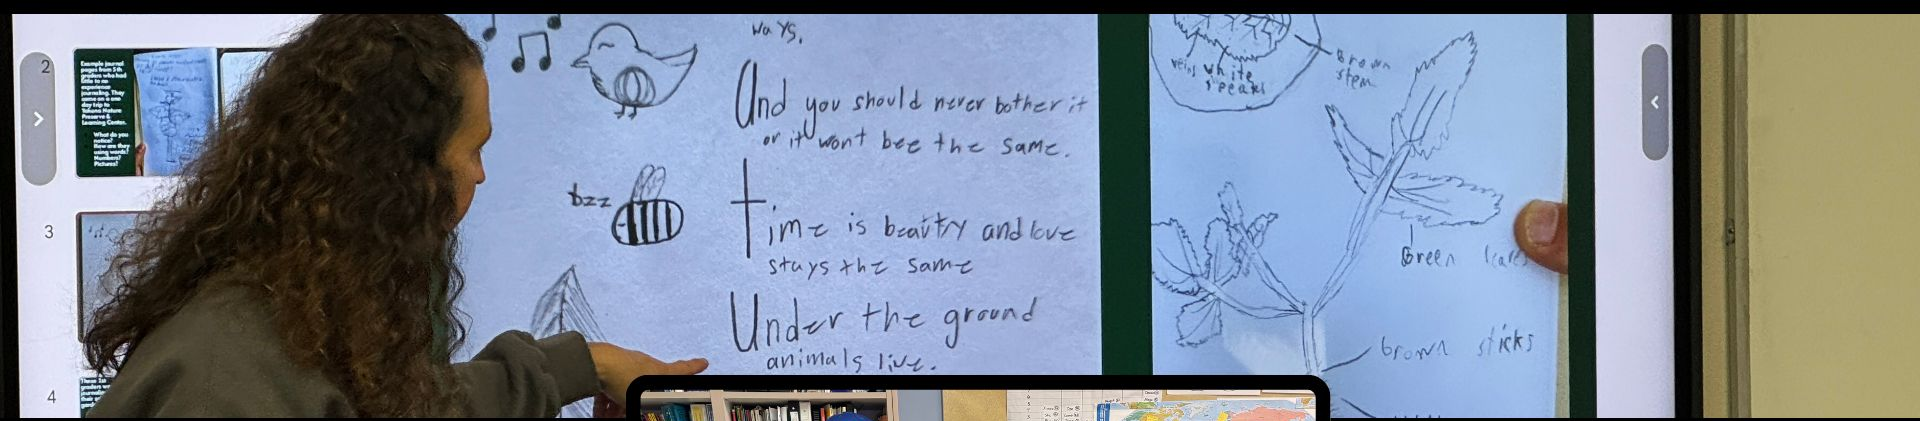 2
Example journal
pages from 5th
graders who had
little to no
experience
journaling. They
came on a one
day trip to
Tekona Nature
Preserve &
Learning Center.
What do you
notice?
How are they
using words?
Numbers?
Pictures?
3
4
ways.
And you should never bother it
or it wont bee the same.
bzz
Time is beautry and love
stays the same
Under the ground
animals live.
veins white
specks
Brown
stem
Green leaves
brown sticks